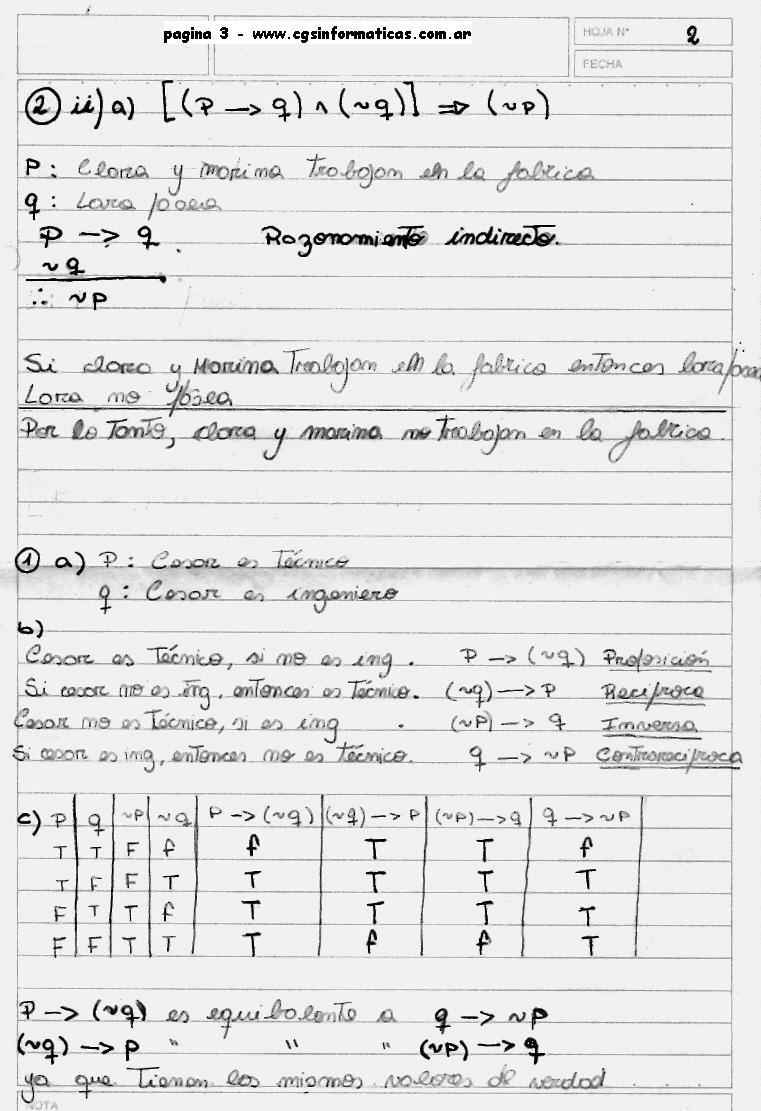 pagina 3 - www.cgsinformaticas.com.ar
HOJA N° 2
FECHA
② ii) a) [(P → q) ∧ (~q)] ⇒ (~P)
P: Clara y marina Trabajan en la fabrica
q: Lara posea
P → q . Razonamiento indirecto.
~q
∴ ~P
Si clara y Marina Trabajan en la fabrica entonces lara posea
Lara no posea
Por lo Tanto, clara y marina no Trabajan en la fabrica.
① a) P: Cesar es Técnico
q: Cesar es ingeniero
b)
Cesar es Técnico, si no es ing. P → (~q) Proposición
Si cesar no es ing, entonces es Técnico. (~q) → P Reciproca
Cesar no es Técnico, si es ing . (~P) → q Inversa
Si cesar es ing, entonces no es técnico. q → ~P Contrareciproca
c) P q ~P ~q P → (~q) (~q) → P (~P) → q q → ~P
T T F f f T T f
T F F T T T T T
F T T f T T T T
F F T T T f f T
P → (~q) es equibalente a q → ~P
(~q) → P " " " (~P) → q
ya que Tienen los mismos valores de verdad . . . .
NOTA